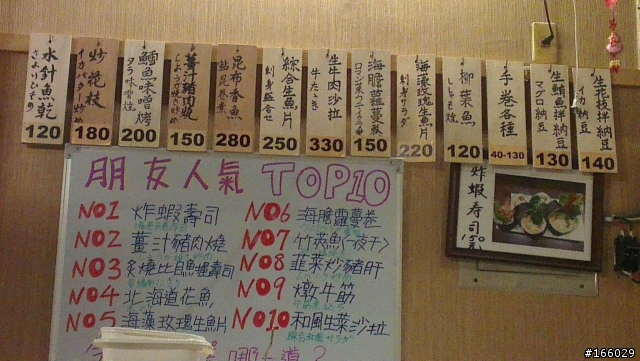 水針魚乾
さよりひもの
120
炒花枝
イカバター炒め
180
鱈魚味噌烤
タラ味噌焼
200
薑汁豬肉燒
しょうが焼き炒め
150
昆布香魚
鮎昆布巻
280
綜合生魚片
刺身盛合せ
250
生牛肉沙拉
牛たたき
330
海膽蘿蔓葉
150
海藻玫瑰生魚片
刺身サラダ
220
柳葉魚
ししゃも焼
120
手卷各種
40-130
生鮪魚拌納豆
マグロ納豆
130
生花枝拌納豆
イカ納豆
140
炸蝦壽司
朋友人氣 TOP10
NO1 炸蝦壽司
NO2 薑汁豬肉燒
NO3 炙燒比目魚握壽司
NO4 北海道花魚
NO5 海藻玫瑰生魚片
NO6 海膽蘿蔓卷
NO7 竹筴魚(一夜干)
NO8 韭菜炒豬肝
NO9 燉牛筋
NO10 和風生菜沙拉
#166029